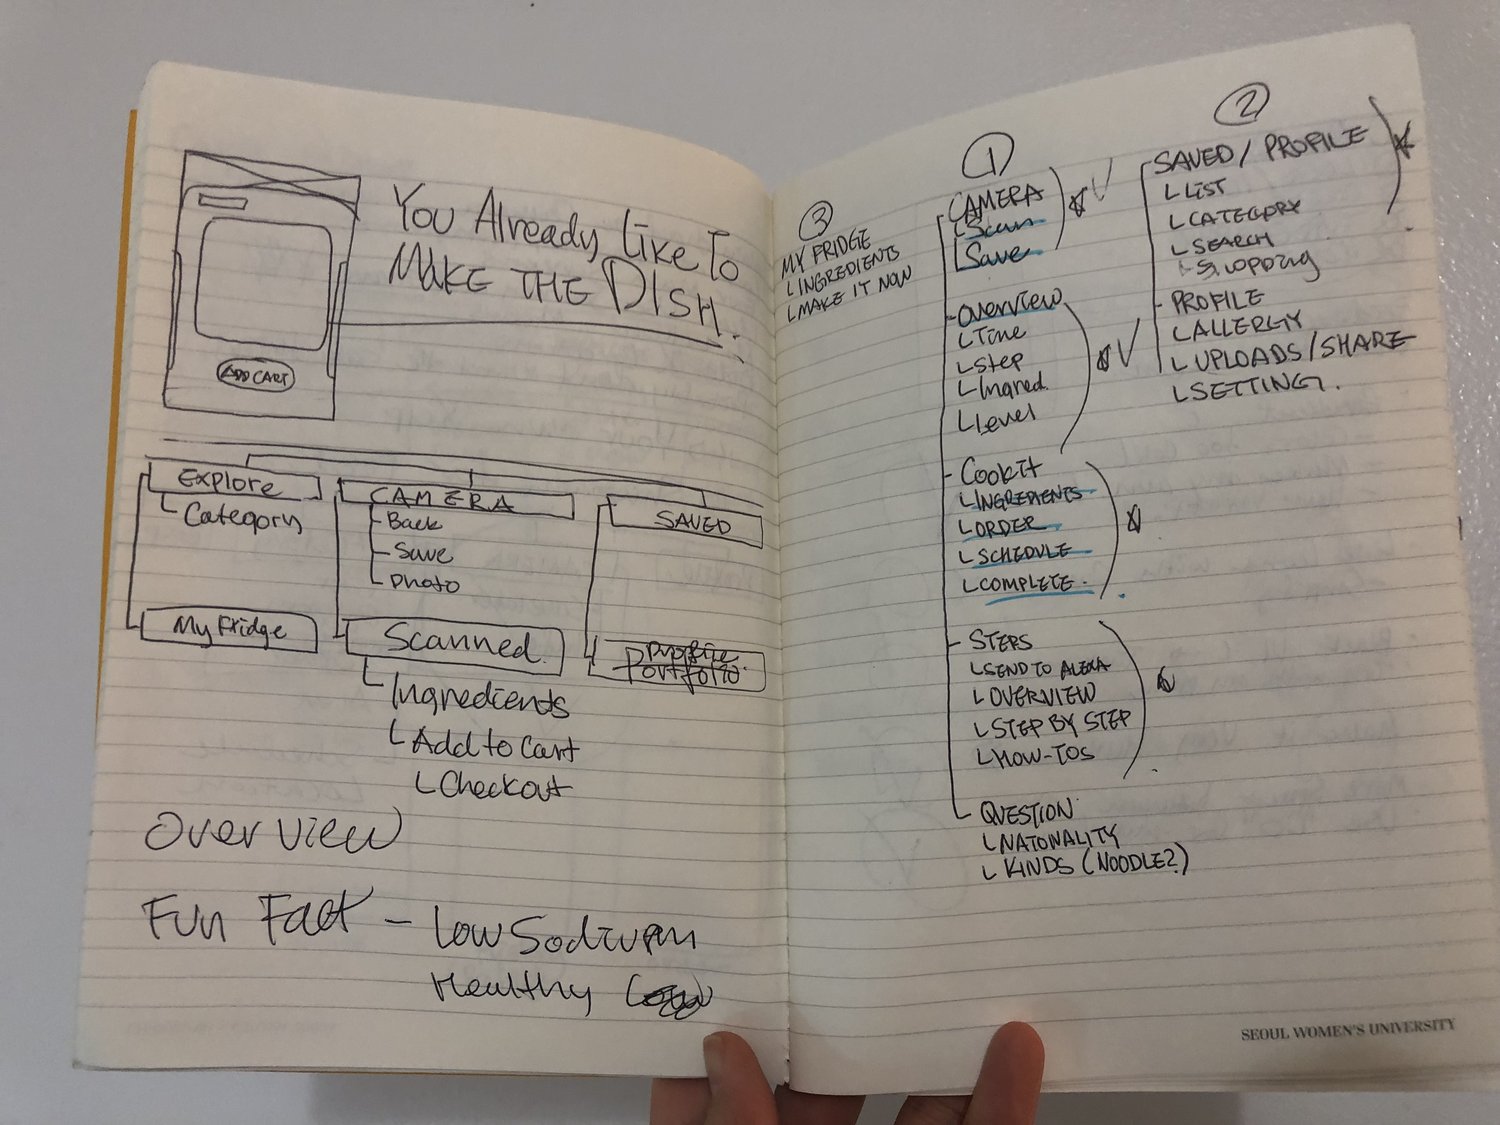 You Already Like To
MAKE THE DISH.
ADD CART
Explore
Category
CAMERA
Back
Save
Photo
SAVED
My Fridge
Scanned.
Ingredients
Add to Cart
Checkout
Profile
Portfolio.
Overview
Fun Fact - Low Sodium
Healthy
3
MY FRIDGE
INGREDIENTS
MAKE IT NOW
1
CAMERA
Scan
Save
Overview
Time
Step
Ingred.
Level
Cookit
INGREDIENTS
ORDER
SCHEDULE
COMPLETE.
STEPS
SEND TO ALEXA
OVERVIEW
STEP BY STEP
HOW-TOS
QUESTION
NATONALITY
KINDS (NOODLE?)
2
SAVED / PROFILE
LIST
CATEGORY
SEARCH
Shopping
PROFILE
ALLERGY
UPLOADS/SHARE
SETTING.
SEOUL WOMEN'S UNIVERSITY